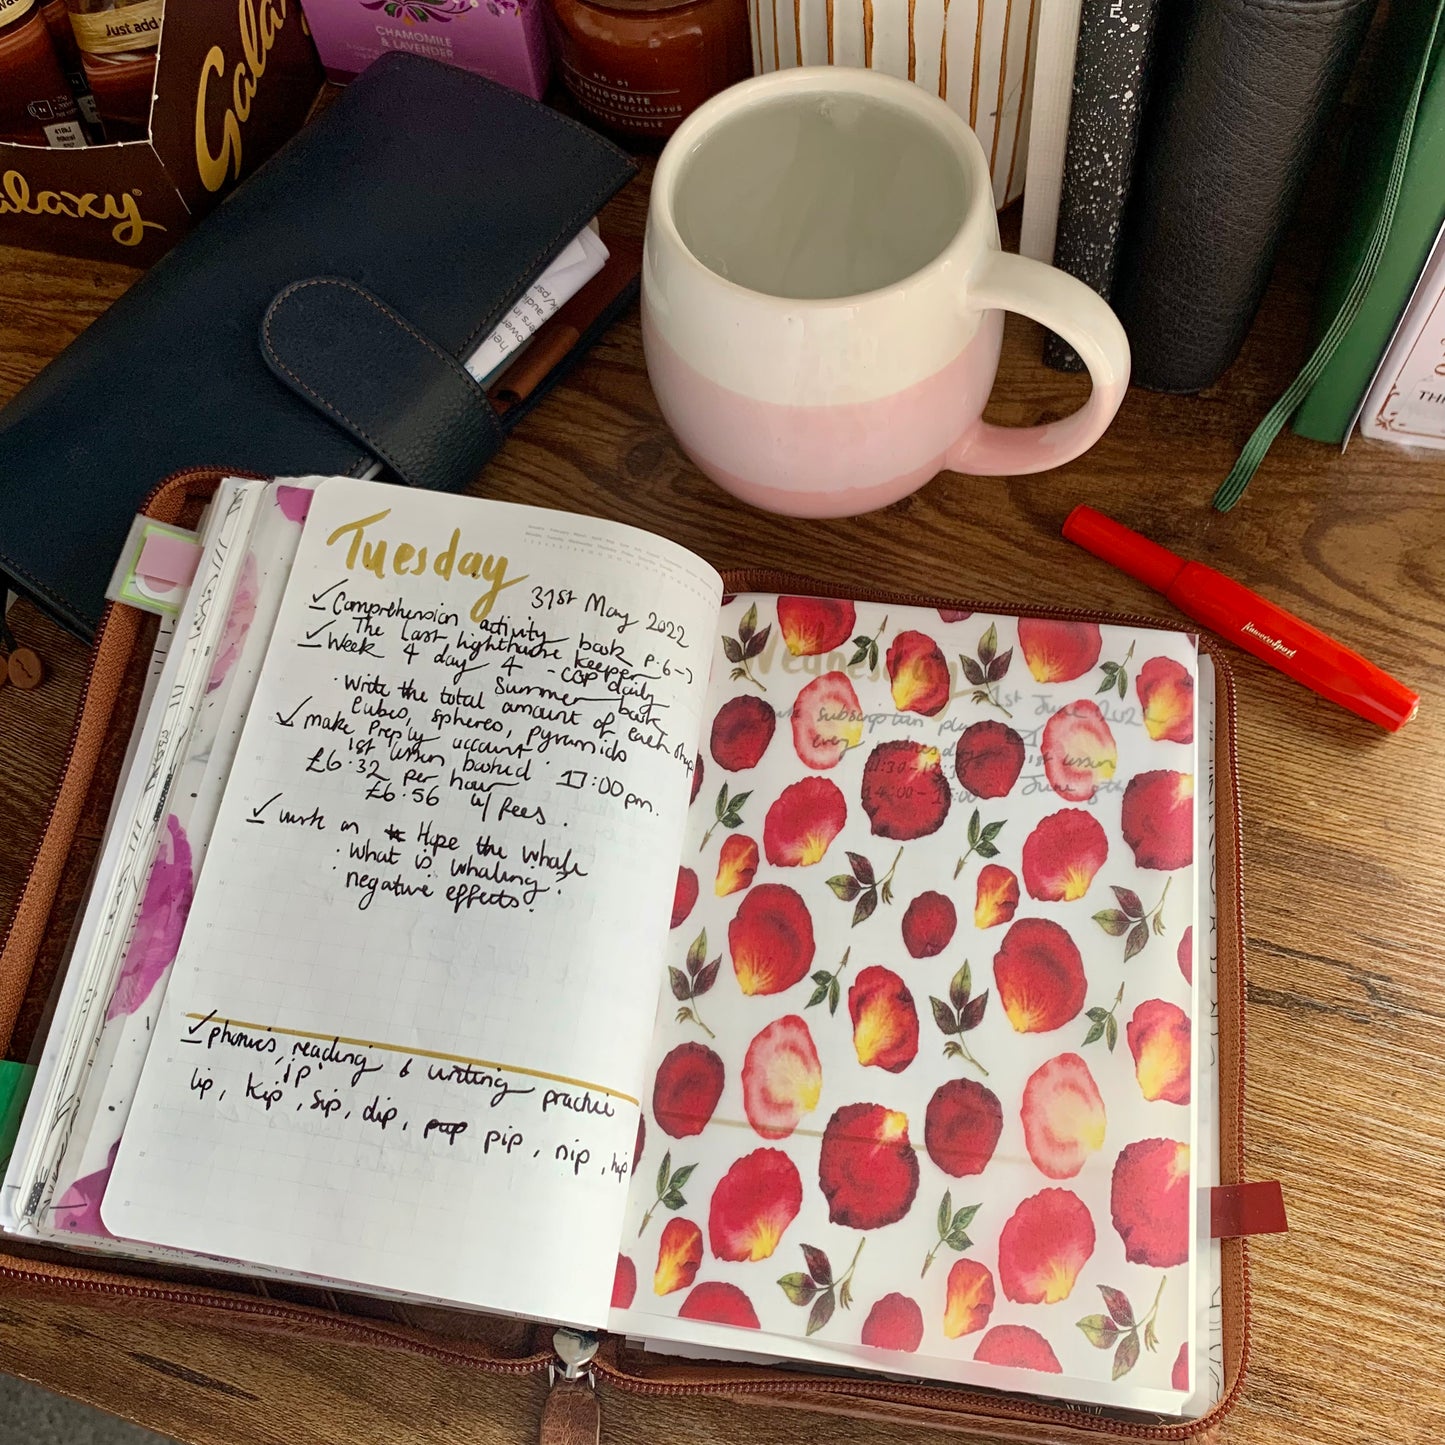 Just add
Galaxy
Galaxy
CHAMOMILE
& LAVENDER
NO. 01
INVIGORATE
& EUCALYPTUS
CANDLE
Tuesday
31st May 2022
Comprehension activity book p.6→
The last lighthouse keeper
Week 4 day 4 - CGP daily
Summer book
· Write the total amount of each shape
cubes, spheres, pyramids
make Preply account.
1st lesson booked 17:00pm.
£6.32 per hour
£6.56 w/ fees.
work on Hope the whale
· What is whaling?
· negative effects.
phonics, reading & writing practice
'ip'
lip, kip, sip, dip, pip, nip, hip
Wednesday
1st June 2022
subscription plan
every wednesday
1st lesson
June 8th
14:00 - 15:00
kaweco sport